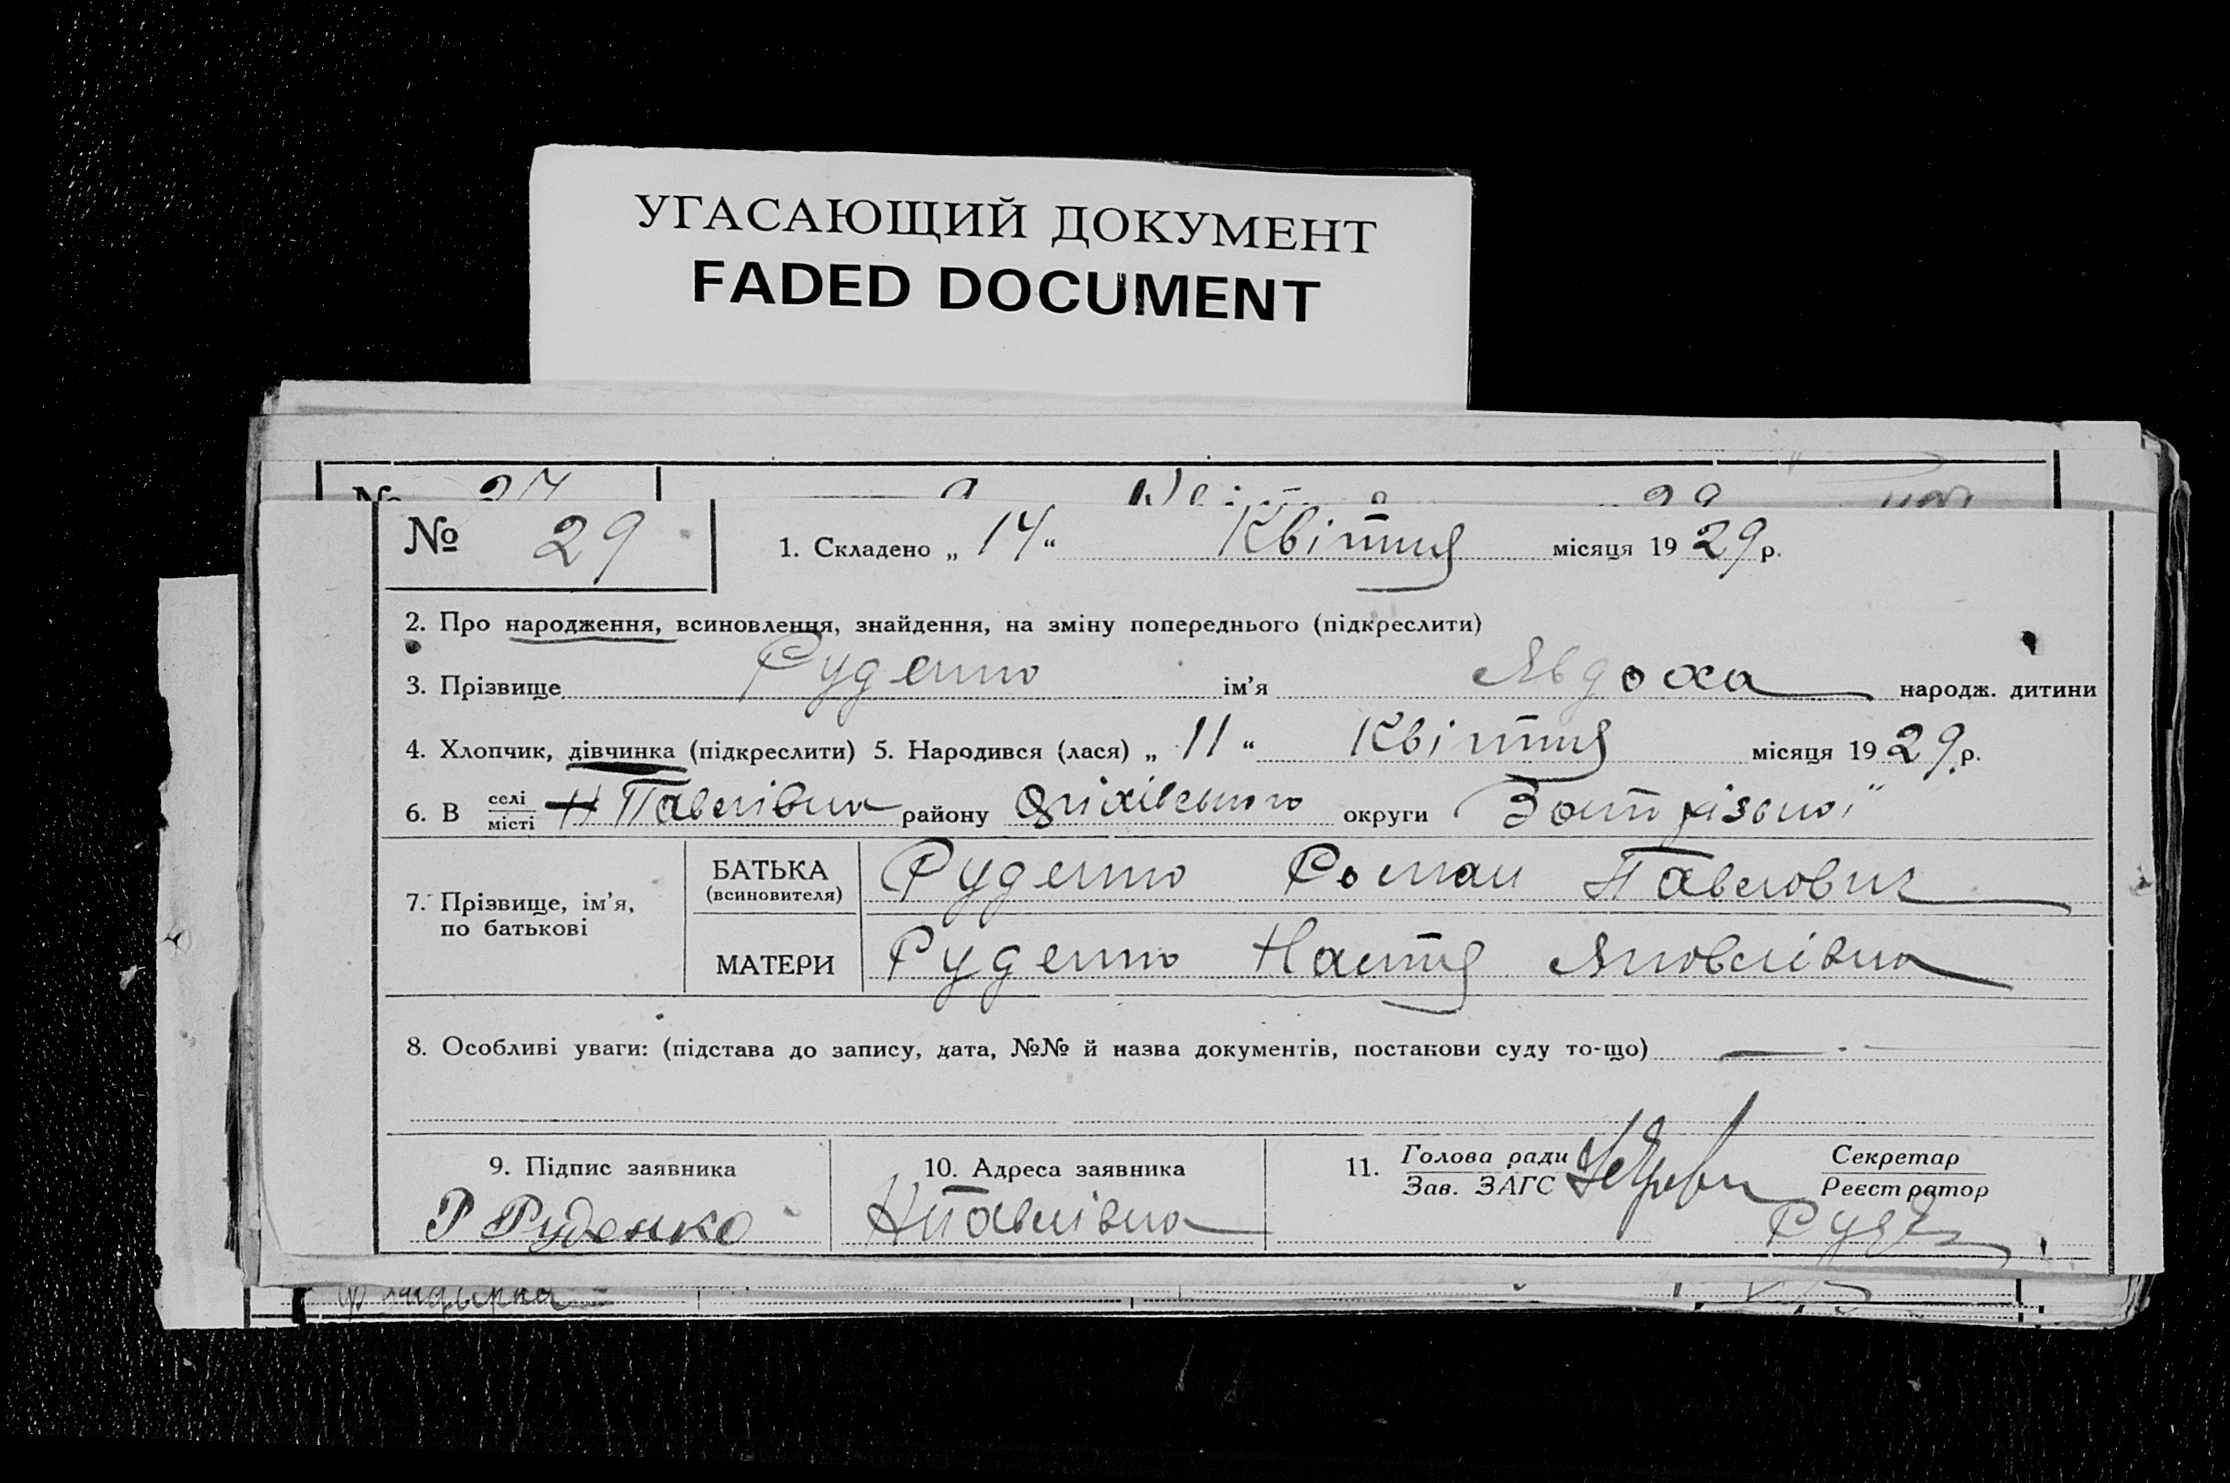 УГАСАЮЩИЙ ДОКУМЕНТ
FADED DOCUMENT
№ 27
№ 29 1. Складено „ 14 “ Квітня місяця 1929 р.
2. Про народження, всиновлення, знайдення, на зміну попереднього (підкреслити)
3. Прізвище Руденко ім’я Явдоха народж. дитини
4. Хлопчик, дівчинка (підкреслити) 5. Народився (лася) „ 11 “ Квітня місяця 1929 р.
6. В селі
місті Н Павлівка району Оріхівського округи Запорізької
7. Прізвище, ім’я, по батькові
БАТЬКА (всиновителя) Руденко Роман Павлович
МАТЕРИ Руденко Настя Яковлівна
8. Особливі уваги: (підстава до запису, дата, №№ й назва документів, постанови суду то-що)
9. Підпис заявника 10. Адреса заявника 11. Голова ради Секретар
Зав. ЗАГС Реєстратор
Р Руденко Н Павлівка